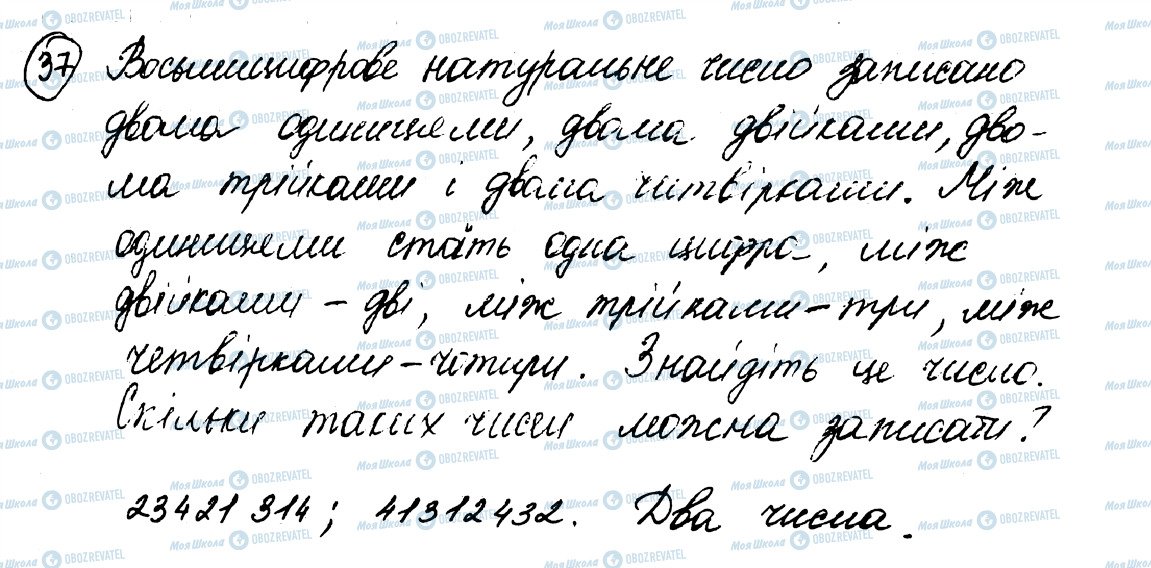 37 Восьмицифрове натуральне число записано
двома одиницями, двома двійками, дво-
ма трійками і двома читвірками. Між
одиницями стать одна цифра, між
двійками – дві, між трійками – три, між
четвірками – чотири. Знайдіть це число.
Скільки таких чисел можна записати?
23421314; 41312432. Два числа.